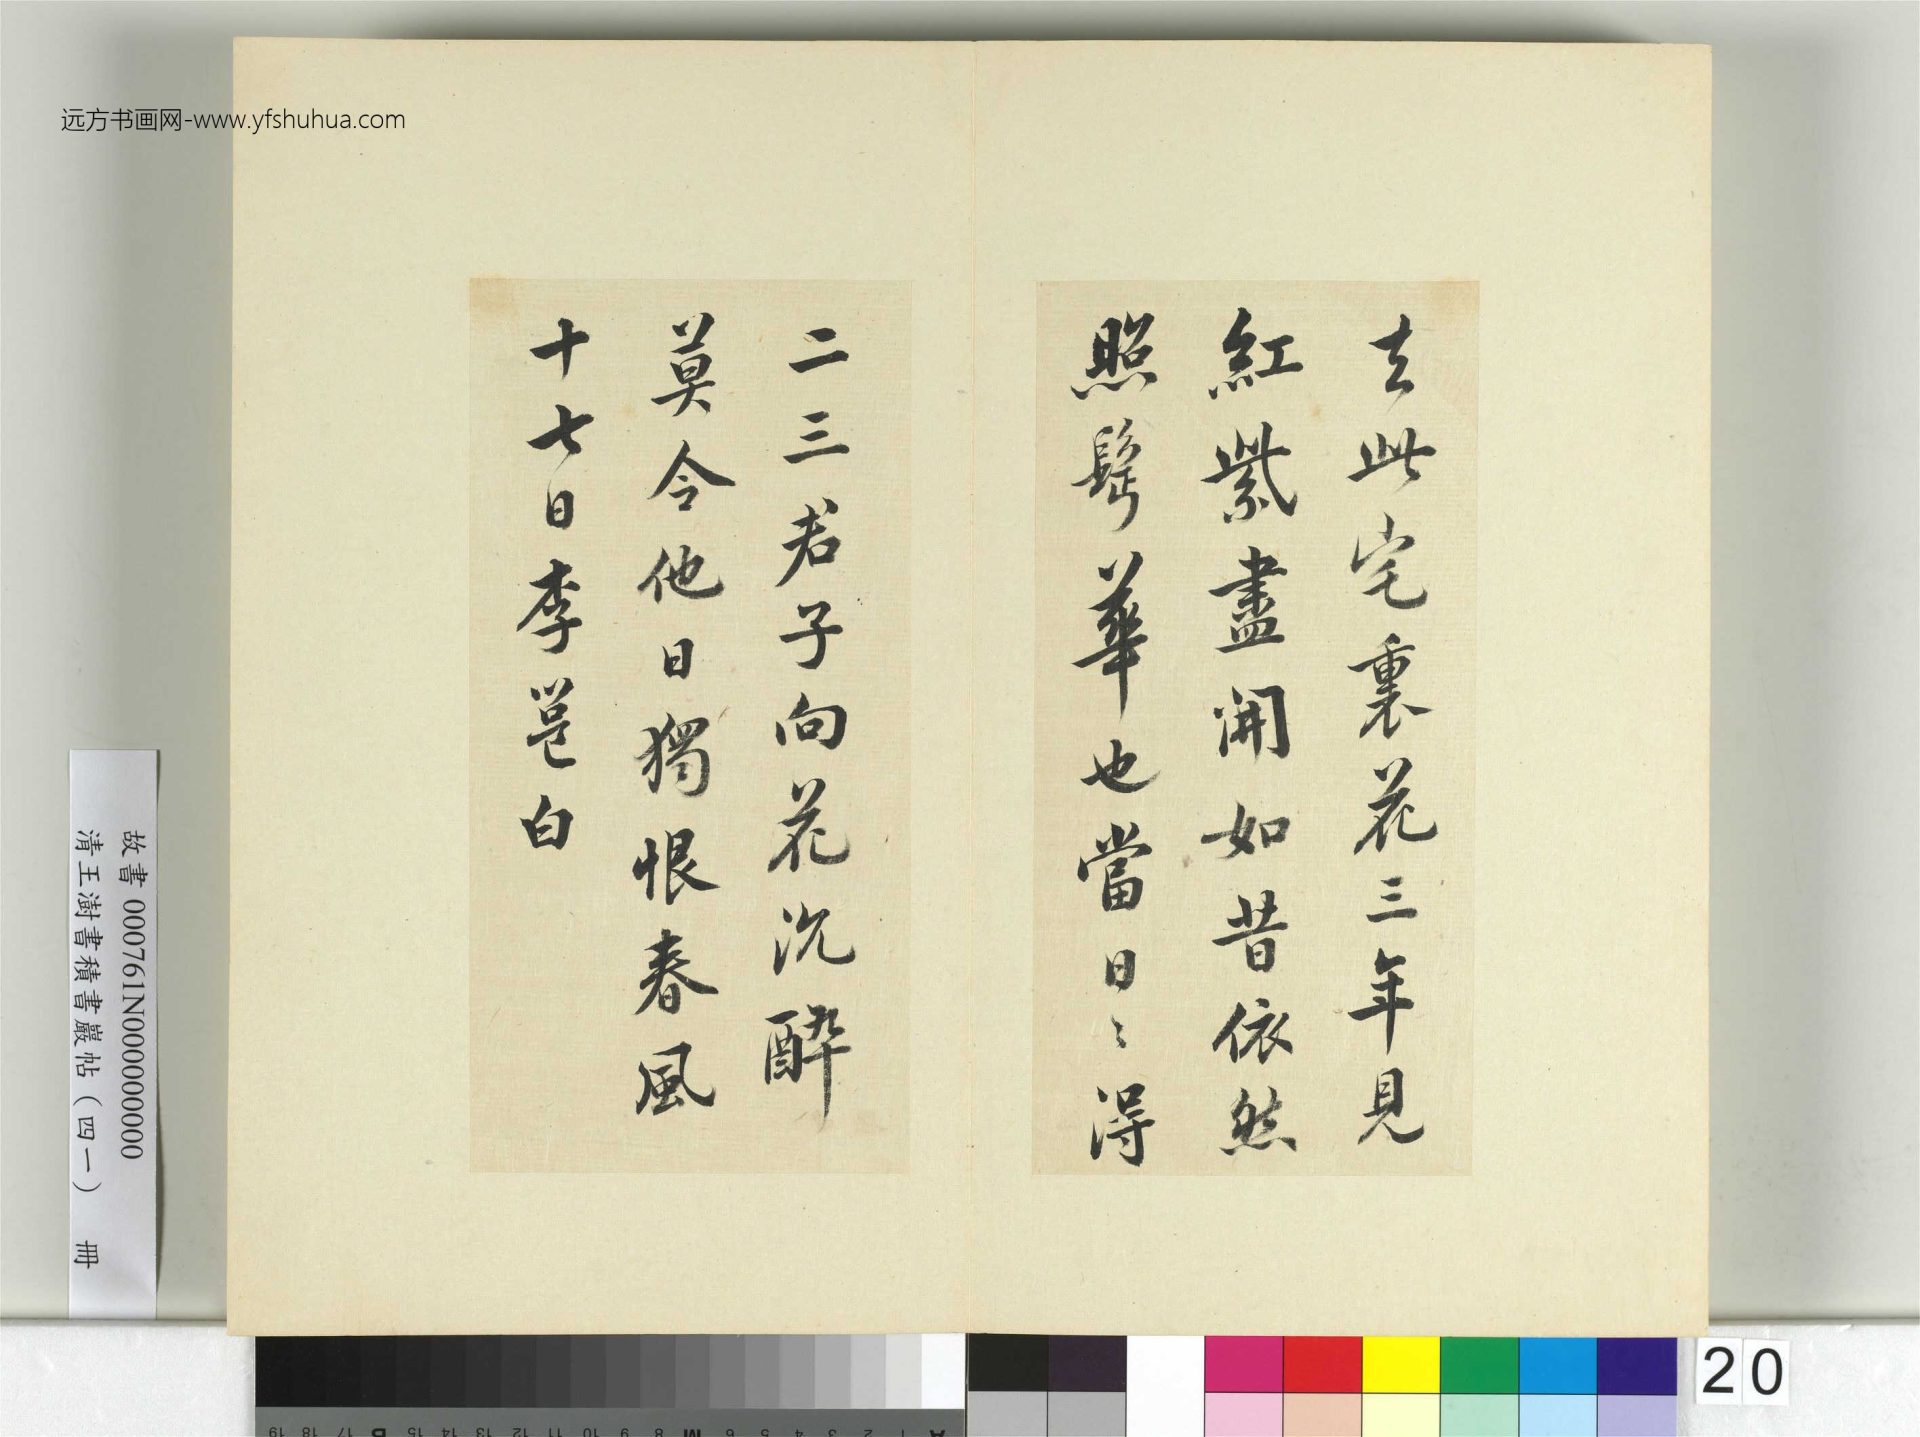 远方书画网-www.yfshuhua.com
去此宅裏花三年見
紅紫盡開如昔依然
照髩華也當日〻得
二三君子向花沉醉
莫令他日獨恨春風
十七日李邕白
故書 000761N000000000
清王澍書積書巖帖(四一) 冊
20